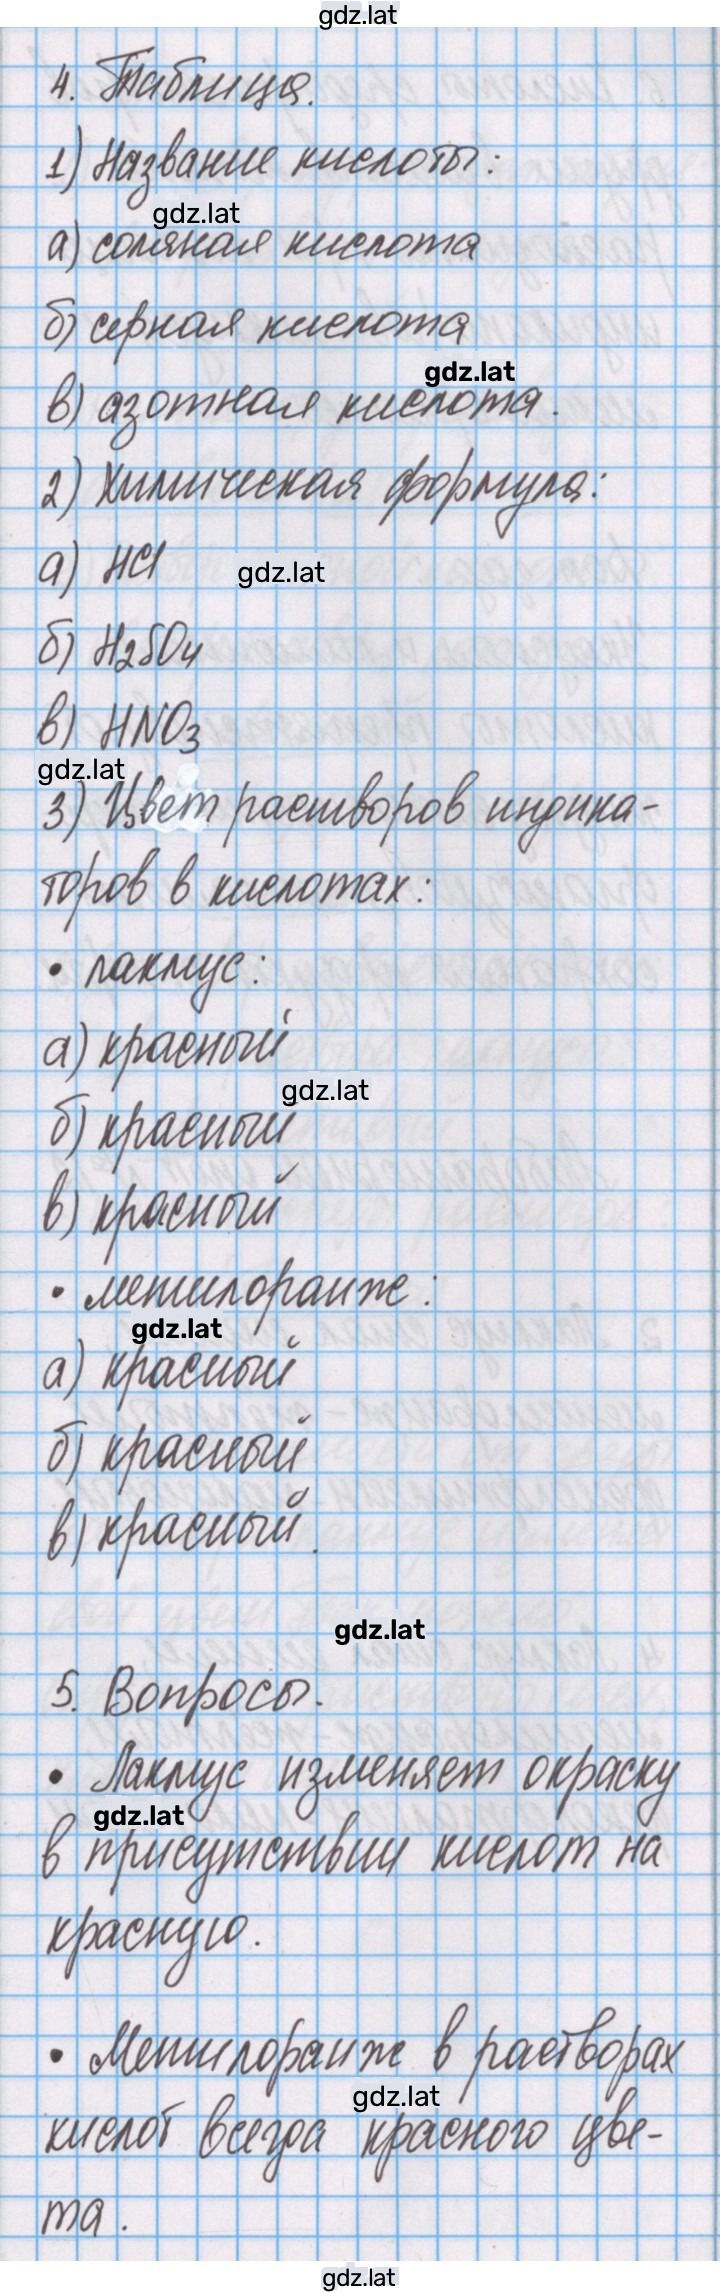 gdz.lat
4. Таблица.
1) Название кислоты:
gdz.lat
а) соляная кислота
б) серная кислота
gdz.lat
в) азотная кислота.
2) Химическая формула:
а) HCl
gdz.lat
б) H2SO4
в) HNO3
gdz.lat
3) Цвет растворов индика-
торов в кислотах:
• лакмус:
а) красный
gdz.lat
б) красный
в) красный
• метилоранж:
gdz.lat
а) красный
б) красный
в) красный.
gdz.lat
5. Вопросы.
• Лакмус изменяет окраску
gdz.lat
в присутствии кислот на
красную.
• Метилоранж в растворах
gdz.lat
кислот всегда красного цве-
та.
gdz.lat